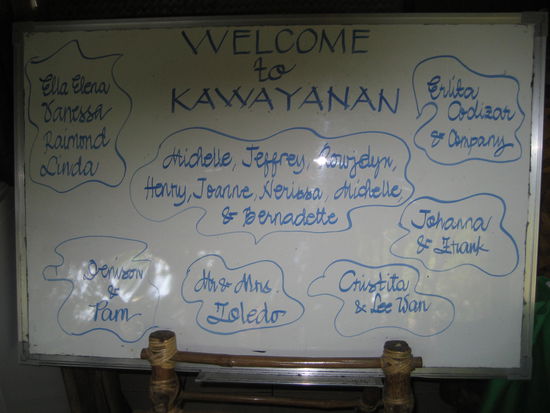 WELCOME
to
KAWAYANAN
Ella Elena
Vanessa
Raimond
Linda
Erlita
Codizar
& Company
Michelle, Jeffrey, Rowjelyn,
Henry, Joanne, Nerissa, Michelle,
& Bernadette
Johanna
& Frank
Denison
&
Pam
Mr & Mrs.
Toledo
Cristita
& Lee Wan